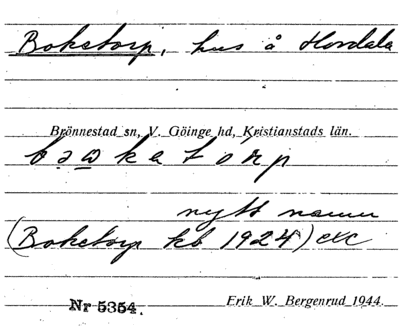 Boketorp, hus å Hovdala
Brönnestad sn, V. Göinge hd, Kristianstads län.
nytt namn
(Boketorp kb 1924) etc
Nr 5354.
Erik W. Bergenrud 1944.